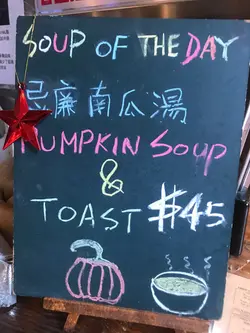 SOUP OF THE DAY
忌廉南瓜湯
PUMPKIN SOUP
&
TOAST $45